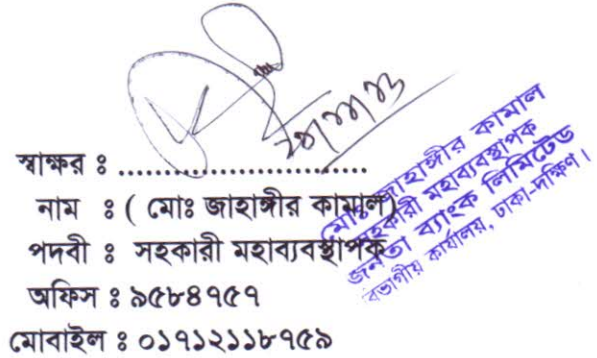 স্বাক্ষর ঃ ..............................
নাম ঃ ( মোঃ জাহাঙ্গীর কামাল)
পদবী ঃ সহকারী মহাব্যবস্থাপক
অফিস ঃ ৯৫৮৪৭৫৭
মোবাইল ঃ ০১৭১২১১৮৭৫৯
মোঃ জাহাঙ্গীর কামাল
সহকারী মহাব্যবস্থাপক
জনতা ব্যাংক লিমিটেড
বিভাগীয় কার্যালয়, ঢাকা-দক্ষিণ।